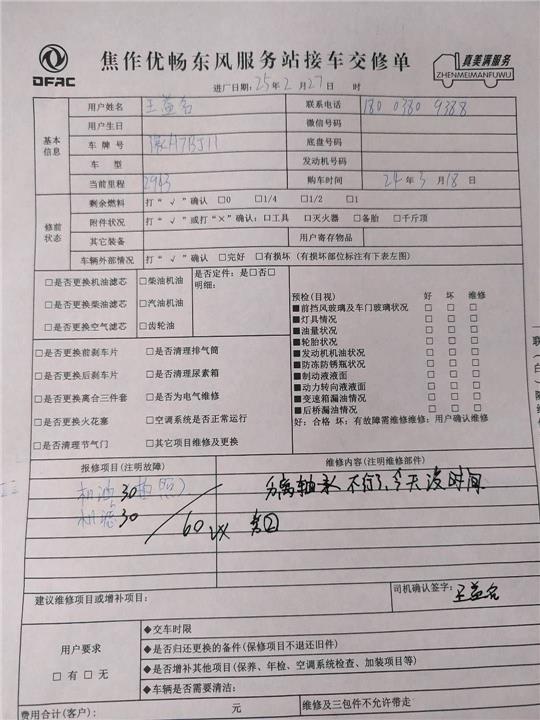 DFAC
焦作优畅东风服务站接车交修单
真美满服务
ZHENMEIMANFUWU
进厂日期:25年2月27日 时
基本信息
用户姓名 王益名 联系电话 180 0380 9388
用户生日 微信号码
车牌号 底盘号码
车型 发动机号码
当前里程 购车时间 24年3月18日
修前状态
剩余燃料 打“√”确认 □0 □1/4 □1/2 □1
附件状况 打“√”或打“×”确认:□工具 □灭火器 □备胎 □千斤顶
其它装备 用户寄存物品
车辆外部情况 打“√”确认 □完好 □有损坏(有损坏部位标注有下表左图)
□是否更换机油滤芯 □柴油机油
□是否更换柴油滤芯 □汽油机油
□是否更换空气滤芯 □齿轮油
是否定件:是□否□
明细:
□是否更换前刹车片 □是否清理排气筒
□是否更换后刹车片 □是否清理尿素箱
□是否更换离合三件套 □是否为电气维修
□是否更换火花塞 □空调系统是否正常运行
□是否清理节气门 □其它项目维修及更换
预检(目视) 好 坏 维修
■前挡风玻璃及车门玻璃状况 □ □ □
■灯具情况 □ □ □
■油量状况 □ □ □
■轮胎状况 □ □ □
■发动机机油状况 □ □ □
■防冻防锈瓶状况 □ □ □
■制动液液面 □ □ □
■动力转向液液面 □ □ □
■变速箱漏油情况 □ □ □
■后桥漏油情况 □ □ □
好:合格 坏:有故障需维修维修:用户确认维修
报修项目(注明故障) 维修内容(注明维修部件)
机油30 分离轴承不行了,今天没时间
机滤30
60
建议维修项目或增补项目:
司机确认签字:王益名
用户要求
□有 □无
◆交车时限
◆是否归还更换的备件(保修项目不退还旧件)
◆是否增补其他项目(保养、年检、空调系统检查、加装项目等)
◆车辆是否需要清洁:
费用合计(客户): 元 维修及三包件不允许带走
联
(
白
)